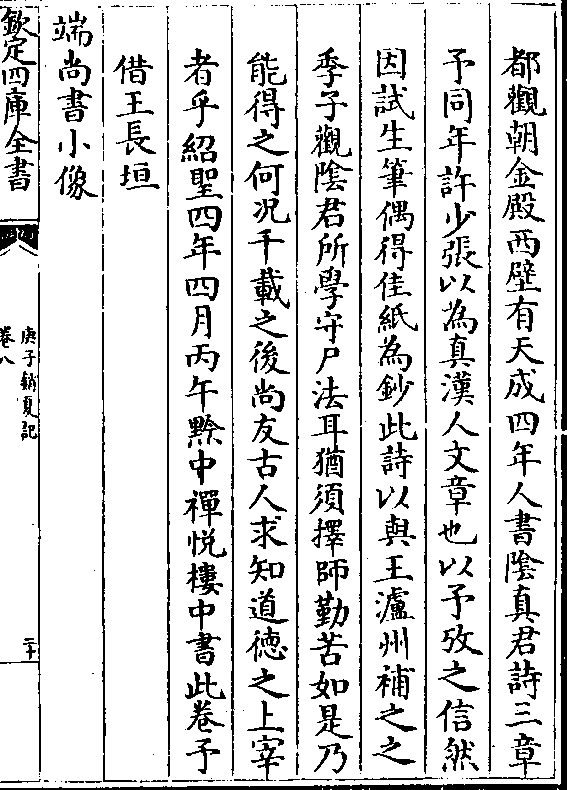 都觀朝金殿西壁有天成四年人書陰真君詩三章
予同年許少張以為真漢人文章也以予攷之信然
因試生筆偶得佳紙為鈔此詩以與王瀘州補之之
季子觀陰君所學守尸法耳猶須擇師勤苦如是乃
能得之何况千載之後尚友古人求知道徳之上宰
者乎紹聖四年四月丙午黔中禪悦樓中書此卷予
借王長垣
端尚書小像
欽定四庫全書
庚子銷夏記
卷八
二十